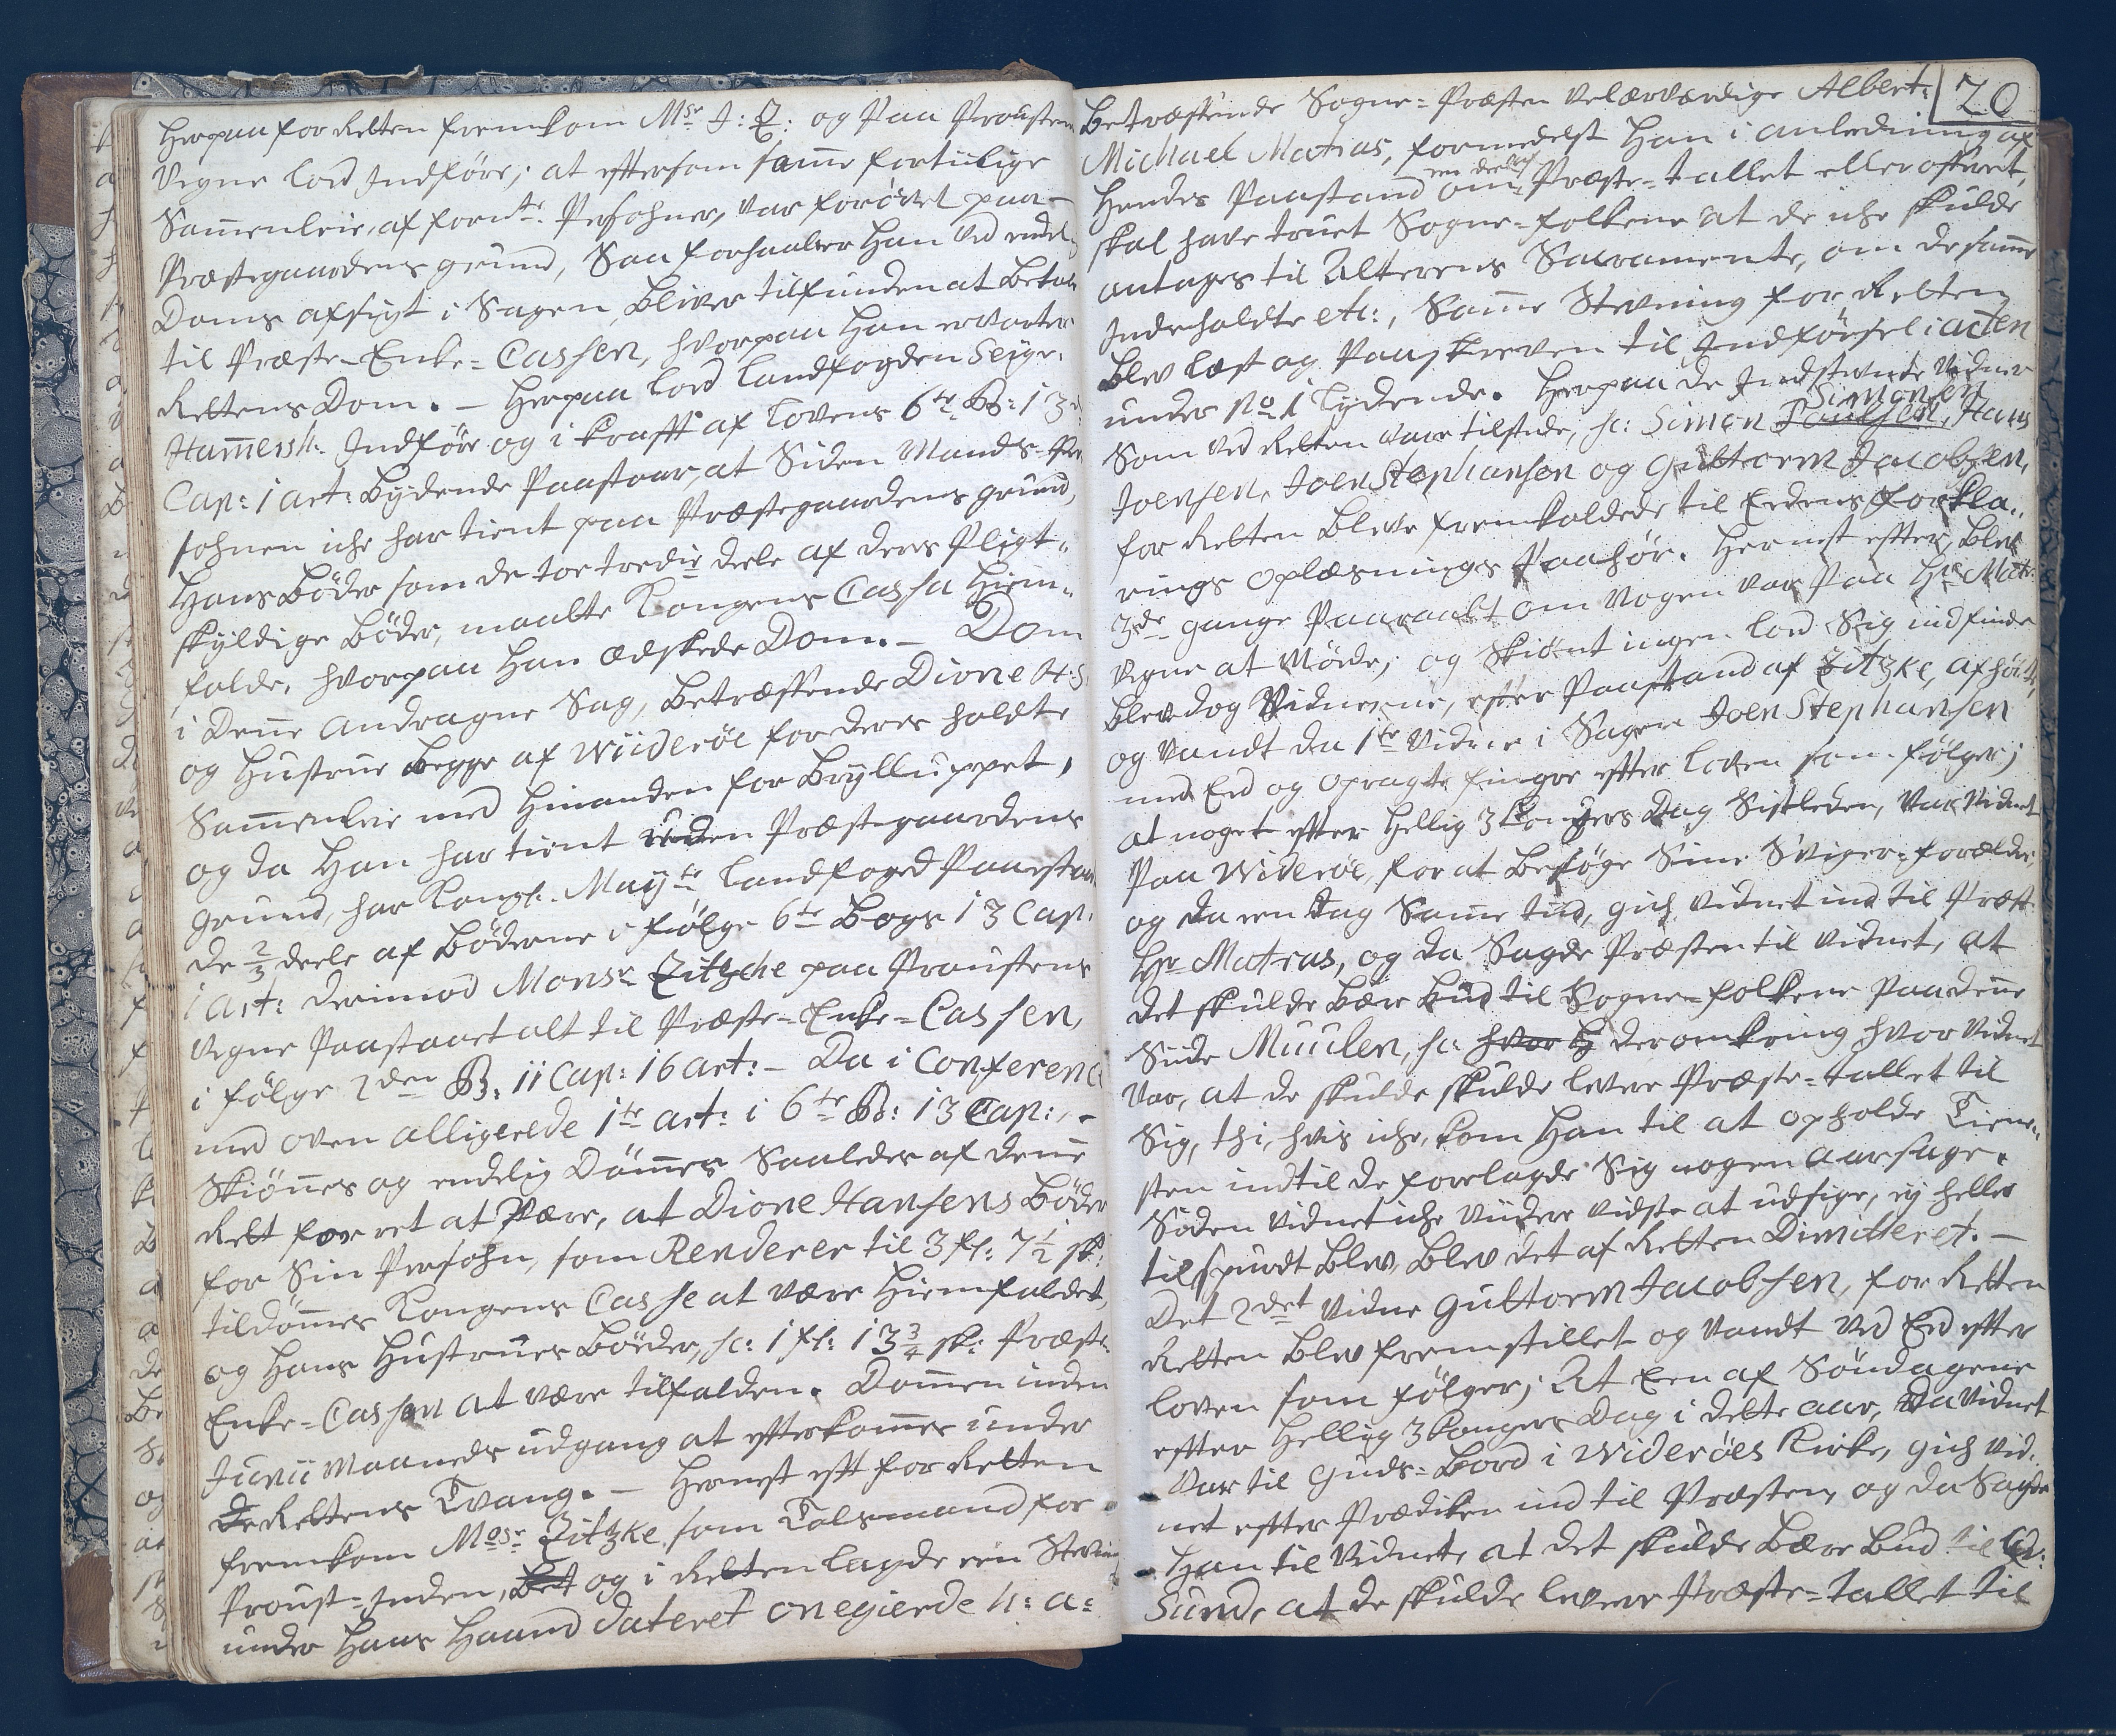 Herpaa for Retten fremkom Msr J: Z: og Paa Proustens
Vegne lod Indføre, at eftersom samme fortiilige
Sammenleie, af fornte Persohner, var forøvet paa
Præstegaardens grund, Saa forhaaber Han ved endel.
Doms afsigt i Sagen, bliver tilfunden at Betale
til Præste-Enke-Cassen, hvorpaa Han ervarter
Rettens Dom. – Herpaa lod Landfogden Seigr.
Hamersh. Indføre og i Krafft af Lovens 6te B: 13
Cap: 1 art: lydende Paastaar, at Siden Mands-Per
sohnen iche har tient paa Præstegaardens grund,
Hans Bøder som de toe tredie deele af deres Pligt-
skyldige Bøder, maatte Kongens Cassa Hiem-
falde, hvorpaa Han ædskede Dom. – Dom
i Denne andragne Sag, Betræffende Dione H:S:
og Hustrue Begge af Wiiderøe for deres holdte
Sammenleie med Hinanden for Brylluppet,
og da Han har tient uden Præstegaardens
grund, har Kongl. Mayts Landfoged Paastaaet
de 2/3 deele af Bøderne i følge 6te Bogs 13 Cap.
1 art: Derimod Monsr Zitzche paa Proustens
Vegne Paastaaet alt til Præste-Enke-Cassen,
i følge 2den B: 11 Cap: 16 art: – Da i Conference
med oven alligerede 1te art: i 6te B: 13 Cap:, –
Skiønnes og endelig Dømmes Saaledes af denne
Rett for ret at Være, at Dione Hansens Bøder
for Sin Persohn, som Renderer til 3 fl: 7 1/2 sk:
tildømmes Kongens Casse at være Hiemfaldet,
og Hans Hustrues Bøder, sc: 1 fl: 13 3/4 sk: Præste-
Enke-Cassen at være tilfalden. Dommen inden
Junii Maaneds udgang at efterkommes under
De Rettens Tvang. – Hernest eft for Retten
fremkom Mosr Zitzke som Talsmand for
Proust-Inden, Bet og i Retten lagde een Stevning
under Hans Haand dateret Onegierde h: a:
Betræffende Sogne-Præsten Velærværdige Albert:
20
Michael Matras, formedelst Han i anledning af
Hendes Paastand om en deel af Præste-tallet eller offeret,
skal have truet Sogne-folkene at de iche skulde
antages til Alterens Sacramente, om de samme
Indeholdte etc:, Samme Stevning for Retten
blev læst og Paaskreven til Indførsel i acten
under No 1 lydende. Herpaa de Indstevnte Vidner
Som ved Retten vare tilstede, sc: Simon Poulsen Simonsen, Hans
Joensen, Joen Stephansen og Guttorm Jacobsen,
for Retten bleve fremkaldede til Eedens forkla-
rings oplæsnings Paahør. Hernest efter, blev
3de gange Paaraabt om Nogen var Paa Hr Matr:
Vegne at Møde; og Skiønt ingen lod Sig indfinde
blev dog Vidnerne, efter Paastand af Zitzke, afhørt,
og Vandt da 1te Vidne i Sagen Joen Stephansen
med Eed og opragte finger efter loven som følger;
at noget efter Hellig 3 Kongers Dag Sistleden, Var Vidnet
Paa Widerøe, for at Besøge Sine Sviger-forældre,
og da een Dag Samme tiid, gich Vidnet ind til Præst
Hr Matras, og da Sagde Præsten til Vidnet, at
det skulde Bære Bud til Sogne-folkene Paa denne
Siide Muulen, sc: hvor H deromkring hvor Vidnet
Var, at de skulde skulde levere Præste-tallet til
Sig, thi, hvis iche, kom Han til at opholde Tiene-
sten indtil de forelagde Sig nogen aarsage.
Siden Vidnet iche Viidere vidste at udsige, ey heller
tilspurdt blev, blev det af Retten Dimitteret. –
Det 2det Vidne Guttorm Jacobsen, for Retten
Retten blev fremstillet og Vandt ved Eed efter
loven som følger; At Een af Søndagene
efter Hellig 3 Kongers Dag i dette aar, da Vidnet
Var til Guds-Bord i Widerøes Kirke, gich Vid-
net efter Prædiken ind til Præsten, og da Sagde
Han til Vidnet, at det skulde Bære Bud til
Sund, at de skulde levere Præste-tallet til